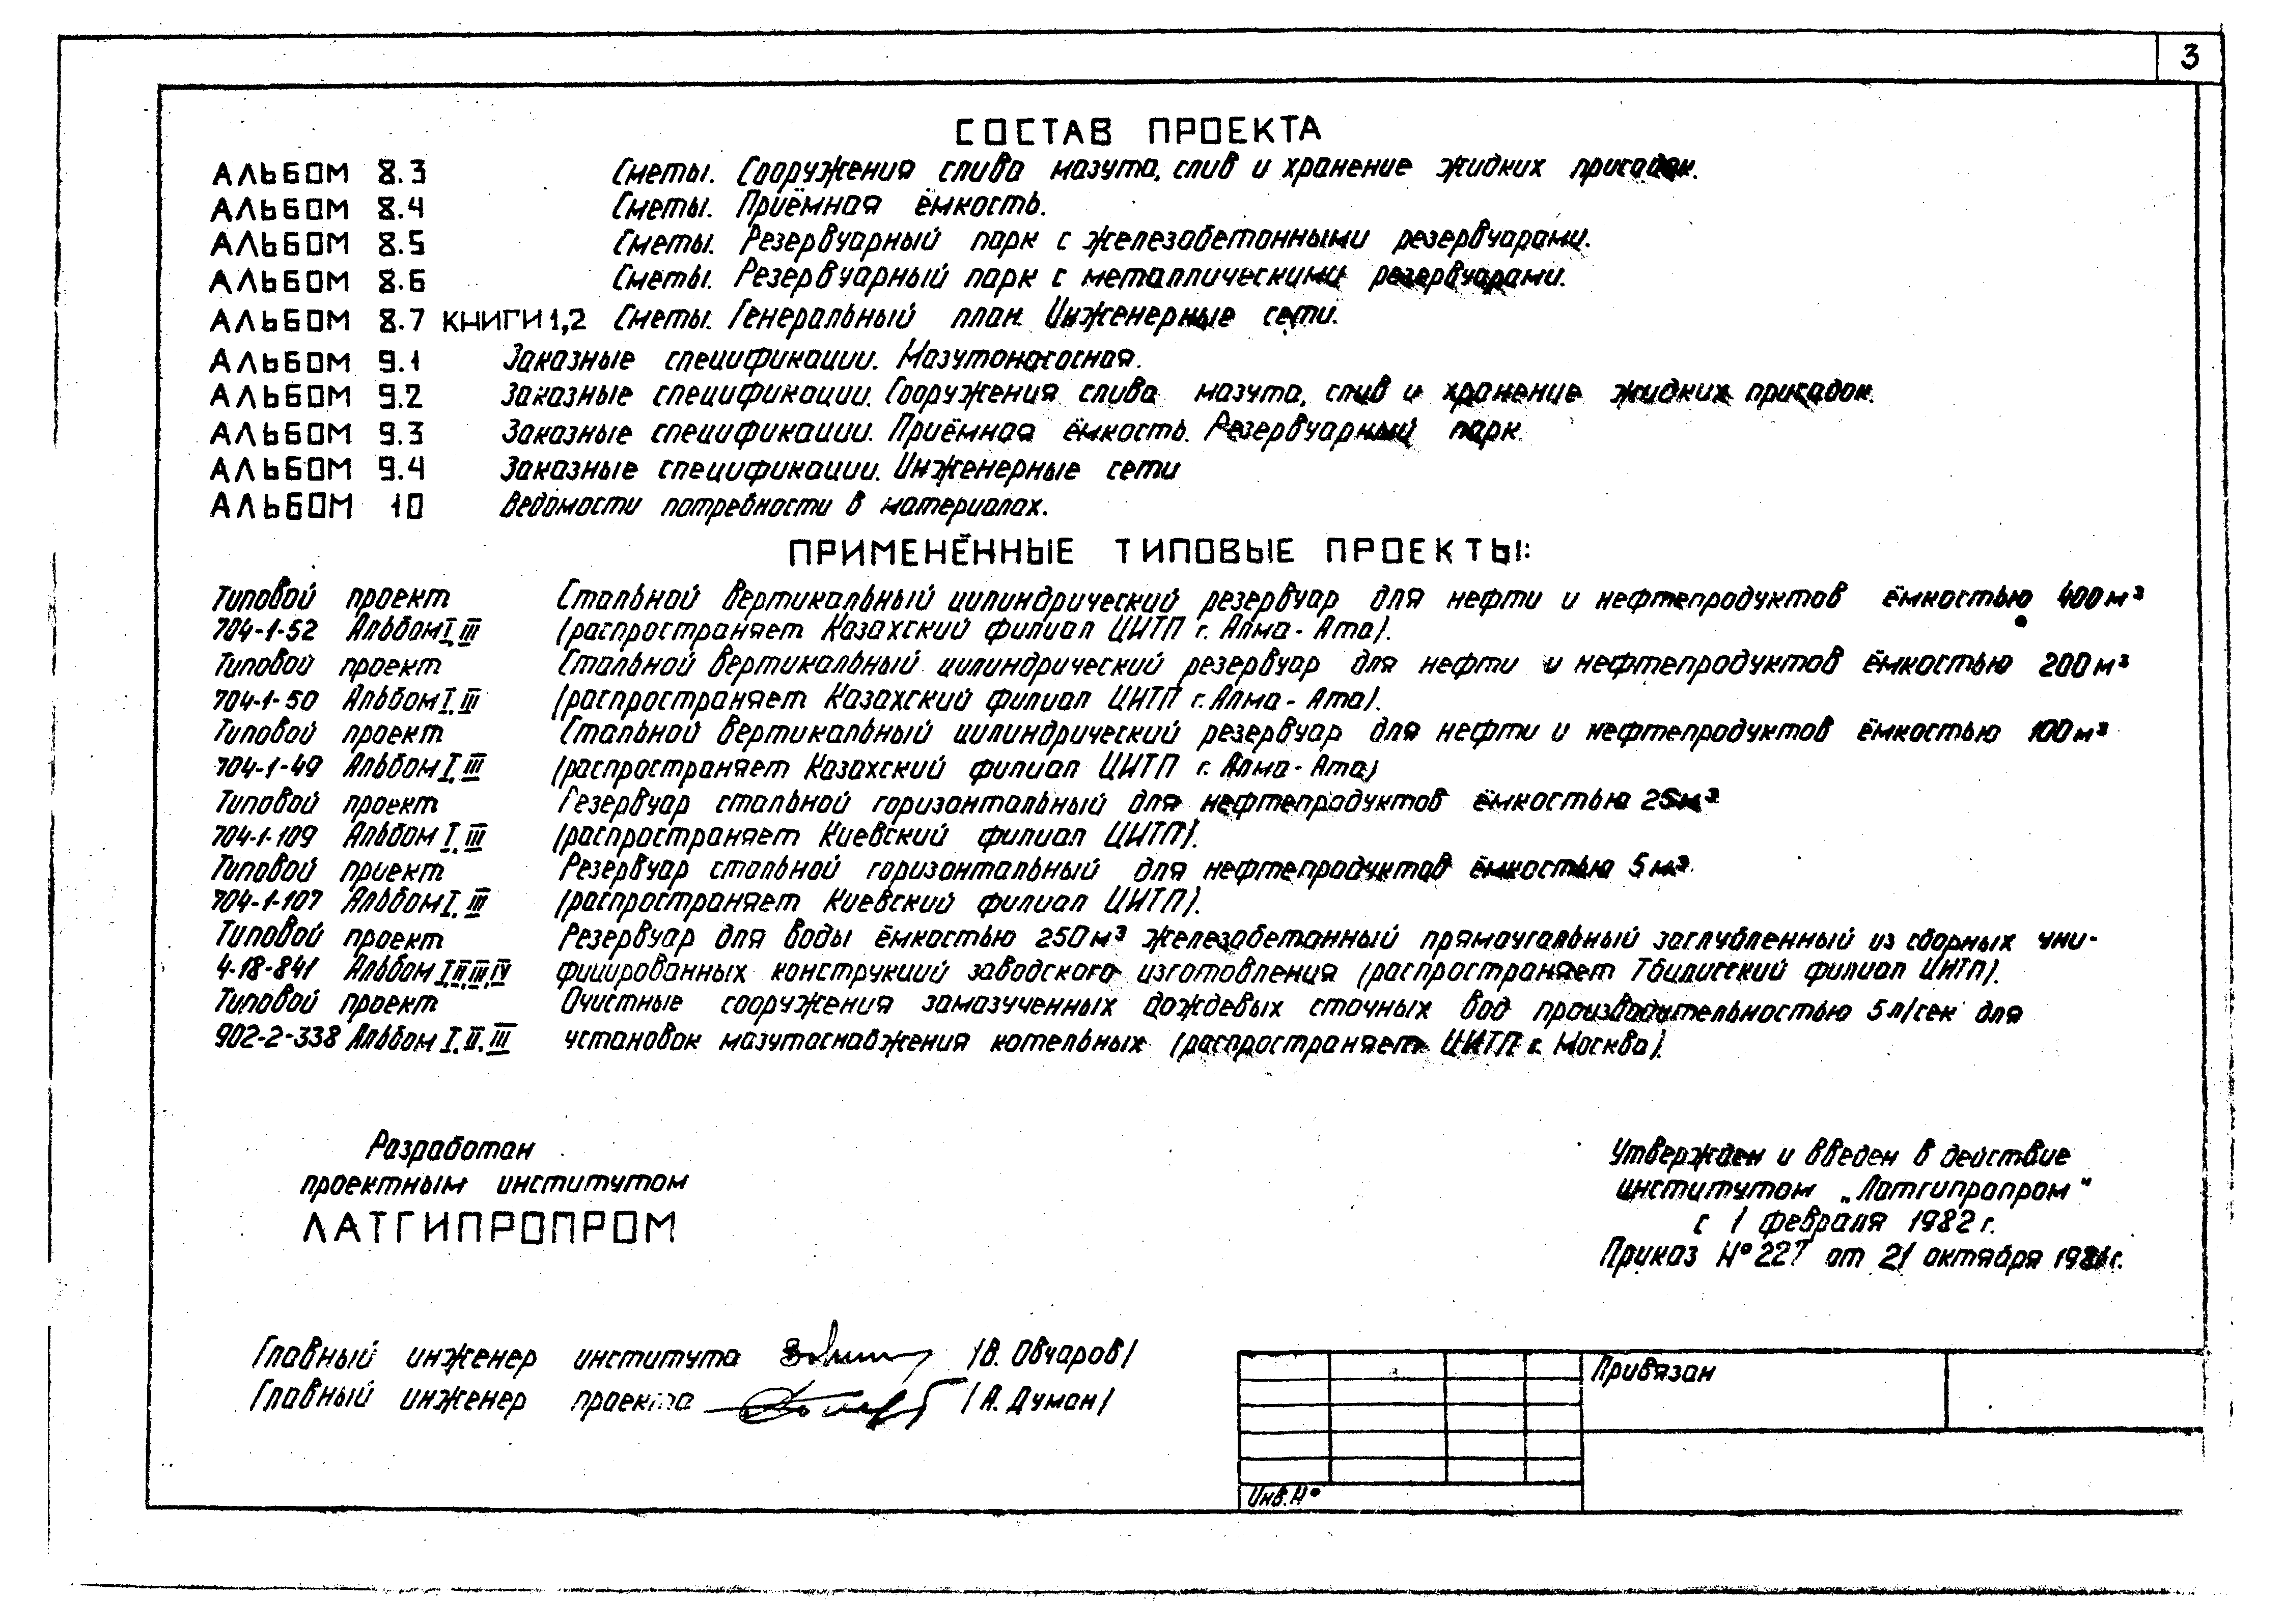 3
СОСТАВ ПРОЕКТА
АЛЬБОМ 8.3 Сметы. Сооружения слива мазута, слив и хранение жидких присадок.
АЛЬБОМ 8.4 Сметы. Приёмная ёмкость.
АЛЬБОМ 8.5 Сметы. Резервуарный парк с железобетонными резервуарами.
АЛЬБОМ 8.6 Сметы. Резервуарный парк с металлическими резервуарами.
АЛЬБОМ 8.7 КНИГИ 1,2 Сметы. Генеральный план. Инженерные сети.
АЛЬБОМ 9.1 Заказные спецификации. Мазутонасосная.
АЛЬБОМ 9.2 Заказные спецификации. Сооружения слива мазута, слив и хранение жидких присадок.
АЛЬБОМ 9.3 Заказные спецификации. Приёмная ёмкость. Резервуарный парк.
АЛЬБОМ 9.4 Заказные спецификации. Инженерные сети
АЛЬБОМ 10 Ведомости потребности в материалах.
ПРИМЕНЁННЫЕ ТИПОВЫЕ ПРОЕКТЫ:
Типовой проект Стальной вертикальный цилиндрический резервуар для нефти и нефтепродуктов ёмкостью 400 м³
704-1-52 Альбом I, III (распространяет Казахский филиал ЦИТП г. Алма-Ата).
Типовой проект Стальной вертикальный цилиндрический резервуар для нефти и нефтепродуктов ёмкостью 200 м³
704-1-50 Альбом I, III (распространяет Казахский филиал ЦИТП г. Алма-Ата).
Типовой проект Стальной вертикальный цилиндрический резервуар для нефти и нефтепродуктов ёмкостью 100 м³
704-1-49 Альбом I, III (распространяет Казахский филиал ЦИТП г. Алма-Ата)
Типовой проект Резервуар стальной горизонтальный для нефтепродуктов ёмкостью 25 м³
704-1-109 Альбом I, III (распространяет Киевский филиал ЦИТП).
Типовой проект Резервуар стальной горизонтальный для нефтепродуктов ёмкостью 5 м³.
704-1-107 Альбом I, III (распространяет Киевский филиал ЦИТП).
Типовой проект Резервуар для воды ёмкостью 250 м³ железобетонный прямоугольный заглубленный из сборных уни-
4-18-841 Альбом I, II, III, IV фицированных конструкций заводского изготовления (распространяет Тбилисский филиал ЦИТП).
Типовой проект Очистные сооружения замазученных дождевых сточных вод производительностью 5 л/сек для
902-2-338 Альбом I, II, III установок мазутоснабжения котельных (распространяет ЦИТП г. Москва).
Разработан
проектным институтом
ЛАТГИПРОПРОМ
Утвержден и введен в действие
институтом „Латгипропром"
с 1 февраля 1982 г.
Приказ № 227 от 21 октября 1981 г.
Главный инженер института /В. Овчаров/
Главный инженер проекта /А. Думан/
Привязан
Инв. №